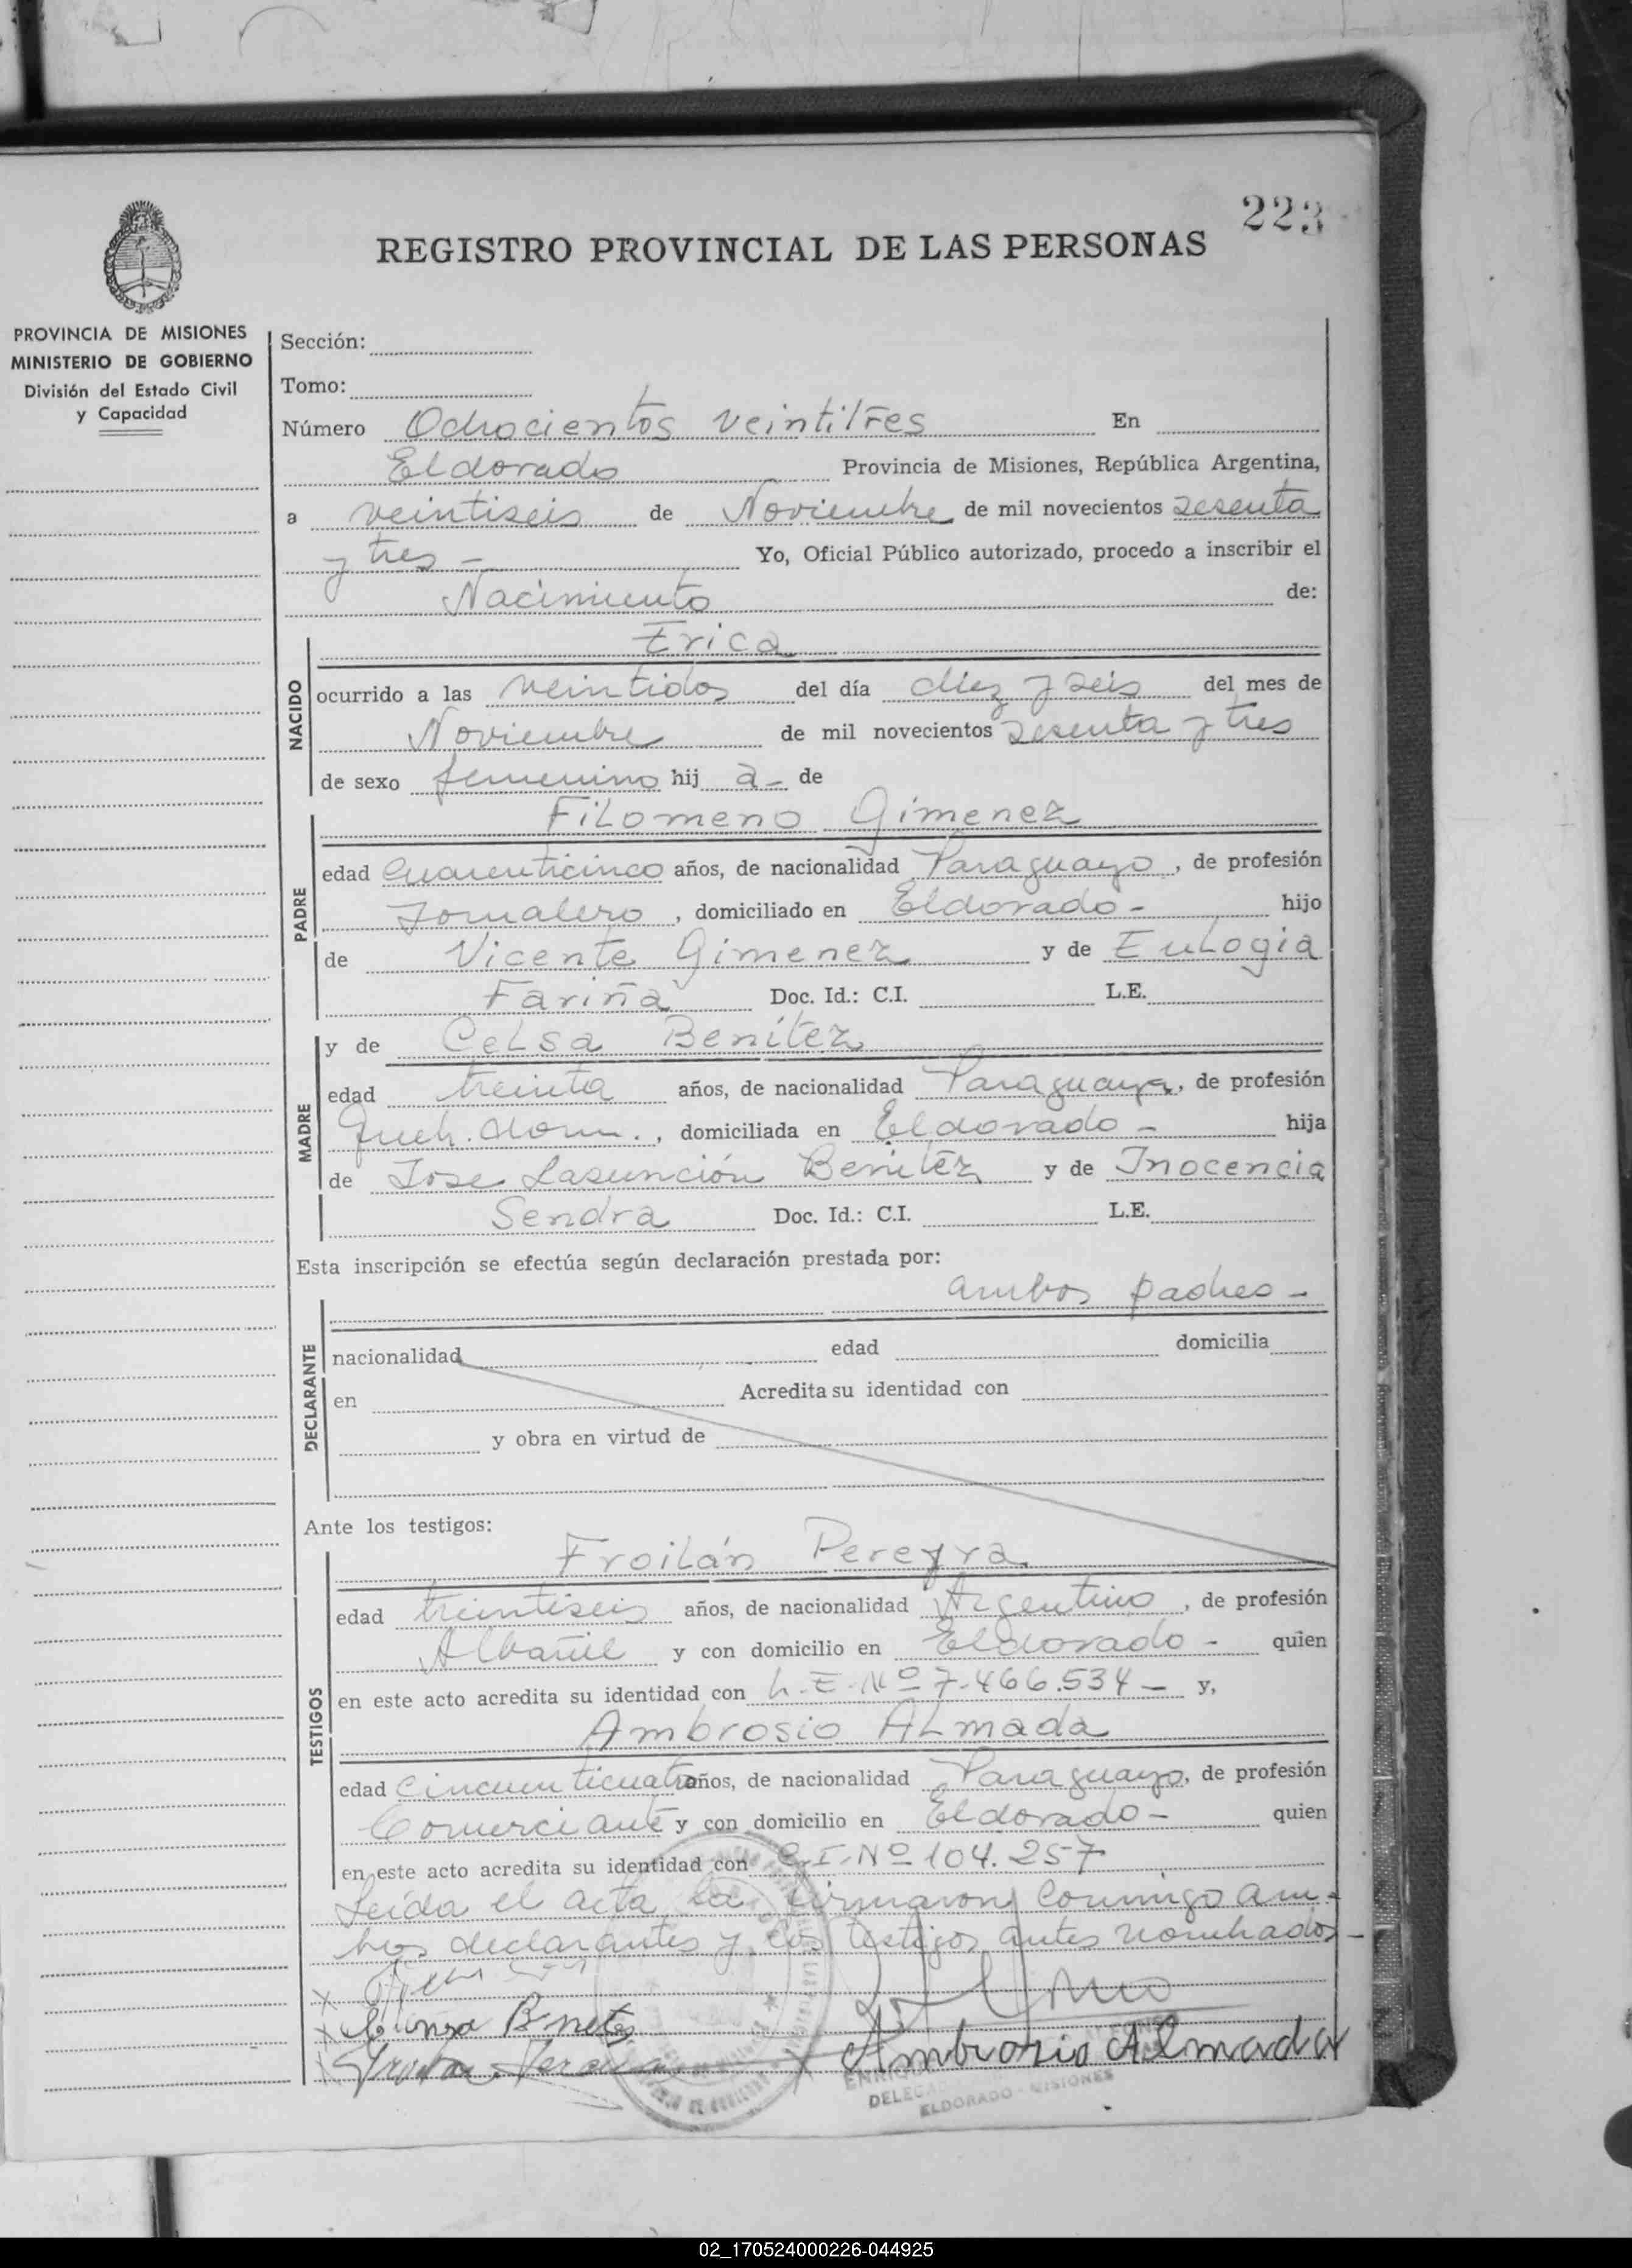 223
REGISTRO PROVINCIAL DE LAS PERSONAS
PROVINCIA DE MISIONES
MINISTERIO DE GOBIERNO
División del Estado Civil
y Capacidad
Sección:
Tomo:
Número Ochocientos veintitres En
Eldorado Provincia de Misiones, República Argentina,
a veintiseis de Noviembre de mil novecientos sesenta
y tres - Yo, Oficial Público autorizado, procedo a inscribir el
Nacimiento de:
NACIDO
Erica
ocurrido a las veintidos del día diez y seis del mes de
Noviembre de mil novecientos sesenta y tres
de sexo femenino hij a- de
PADRE
Filomeno Gimenez
edad Cuarenticinco años, de nacionalidad Paraguayo, de profesión
Jornalero, domiciliado en Eldorado- hijo
de Vicente Gimenez y de Eulogia
Fariña Doc. Id.: C.I. L.E.
MADRE
y de Celsa Benítez
edad treinta años, de nacionalidad Paraguaya, de profesión
Queh. dom., domiciliada en Eldorado - hija
de Jose Lasunción Benitéz y de Inocencia
Sendra Doc. Id.: C.I. L.E.
Esta inscripción se efectúa según declaración prestada por:
ambos padres -
DECLARANTE
nacionalidad edad domicilia
en Acredita su identidad con
y obra en virtud de
Ante los testigos:
TESTIGOS
Froilán Pereyra
edad treintiseis años, de nacionalidad Argentino, de profesión
Albañil y con domicilio en Eldorado - quien
en este acto acredita su identidad con L.E.Nº 7.466.534 - y,
Ambrosio Almada
edad Cincuenticuatro años, de nacionalidad Paraguayo, de profesión
Comerciante y con domicilio en Eldorado - quien
en este acto acredita su identidad con C.I.Nº 104.257
Leída el acta, la firmaron conmigo am-
bos declarantes y los testigos antes nombrados-
Ambrosio Almada
ELDORADO - MISIONES
02_170524000226-044925